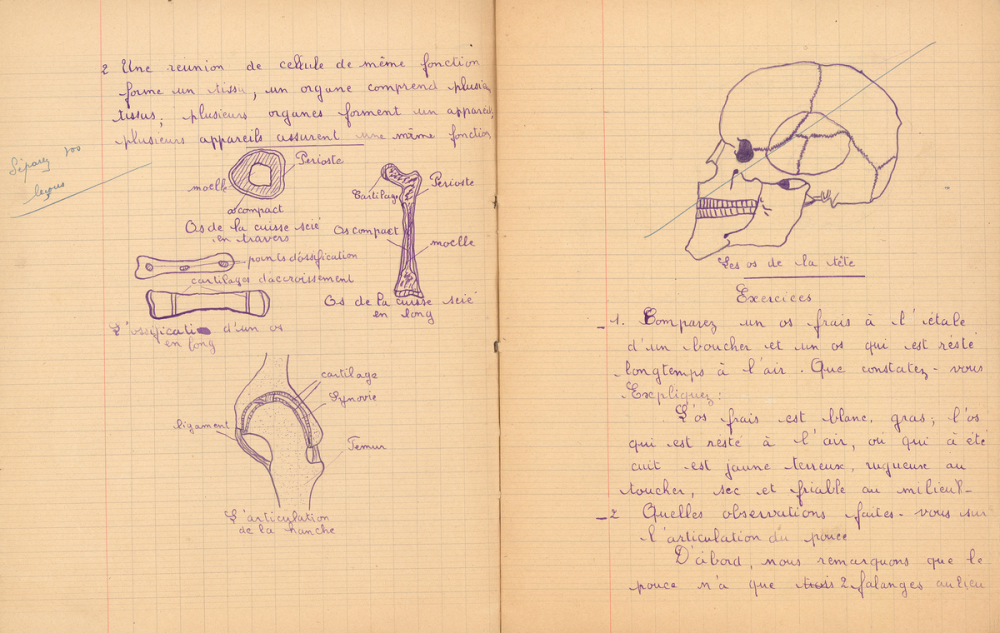 2 Une reunion de cellule de même fonction
forme un tissu, un organe comprend plusieu
tissus; plusieurs organes forment un appareil,
plusieurs appareils assurent une même fonction
Séparez vos
leçons
Perioste
moelle
os compact
Os de la cuisse scié
en travers
Cartilage
Perioste
Os compact
moelle
Os de la cuisse scié
en long
points d'ossification
cartilages d'accroissement
L'ossification d'un os
en long
cartilage
Synovie
ligament
Femur
L'articulation
de la hanche
Les os de la tête
Exercices
1. Comparez un os frais à l'étale
d'un boucher et un os qui est resté
longtemps à l'air. Que constatez-vous
Expliquez:
L'os frais est blanc, gras; l'os
qui est resté à l'air, ou qui à été
cuit est jaune terreux, rugueux au
toucher, sec et friable au milieu.
2 Quelles observations faites-vous sur
l'articulation du pouce
D'abord, nous remarquons que le
pouce n'à que trois 2 falanges au lieu